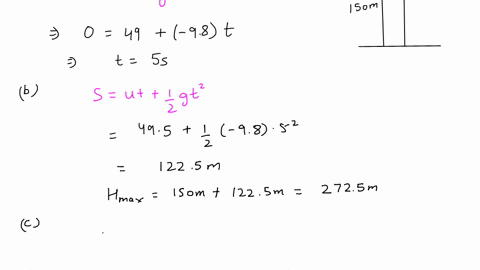 150m
⇒ 0 = 49 + (-9.8) t
⇒ t = 5s
(b) S = ut + 1/2 gt²
= 49.5 + 1/2 (-9.8) · 5²
= 122.5m
Hmax = 150m + 122.5m = 272.5m
(c)